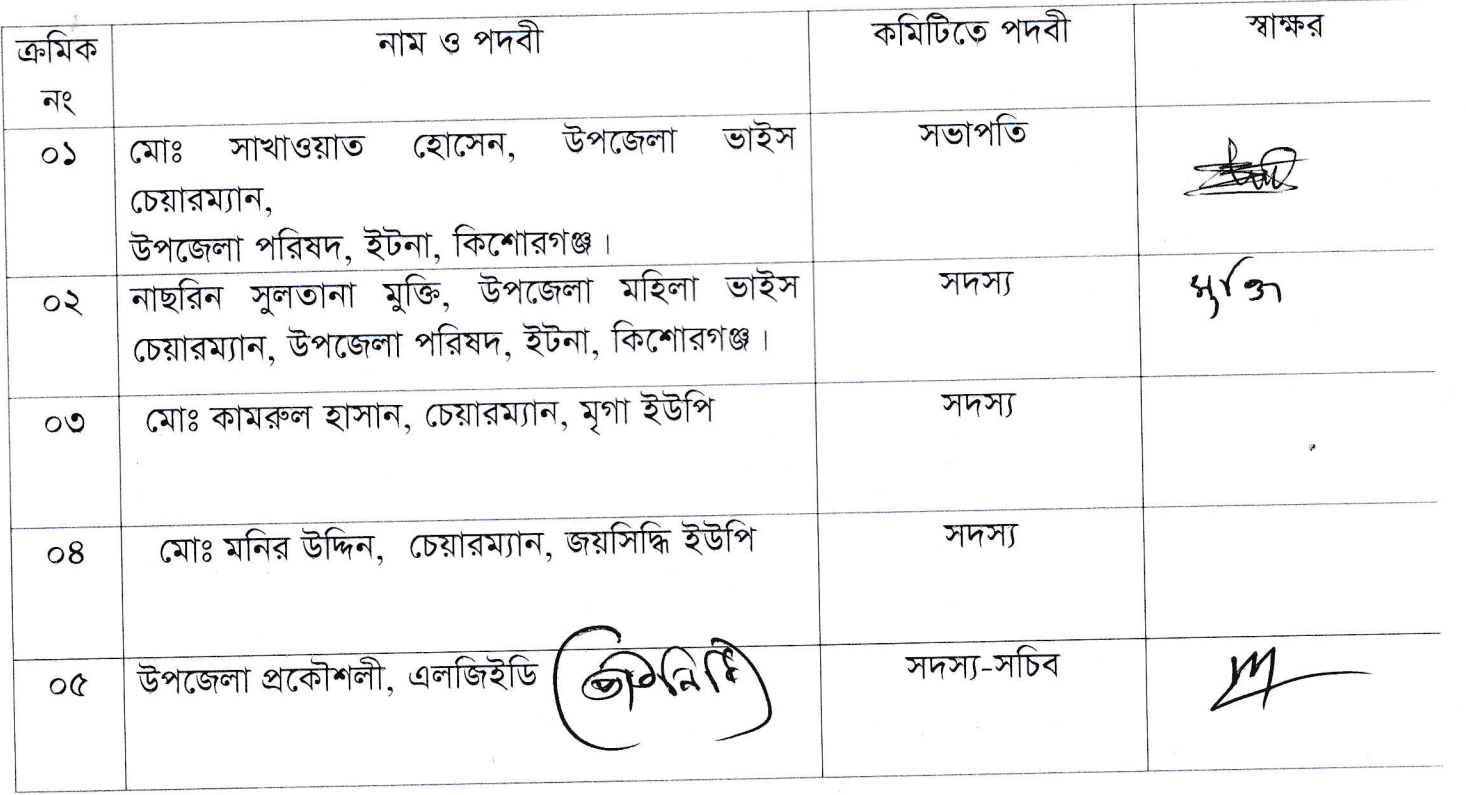 ক্রমিক নাম ও পদবী কমিটিতে পদবী স্বাক্ষর
নং
০১ মোঃ সাখাওয়াত হোসেন, উপজেলা ভাইস সভাপতি
চেয়ারম্যান,
উপজেলা পরিষদ, ইটনা, কিশোরগঞ্জ।
০২ নাছরিন সুলতানা মুক্তি, উপজেলা মহিলা ভাইস সদস্য
চেয়ারম্যান, উপজেলা পরিষদ, ইটনা, কিশোরগঞ্জ।
০৩ মোঃ কামরুল হাসান, চেয়ারম্যান, মৃগা ইউপি সদস্য
০৪ মোঃ মনির উদ্দিন, চেয়ারম্যান, জয়সিদ্ধি ইউপি সদস্য
০৫ উপজেলা প্রকৌশলী, এলজিইডি সদস্য-সচিব